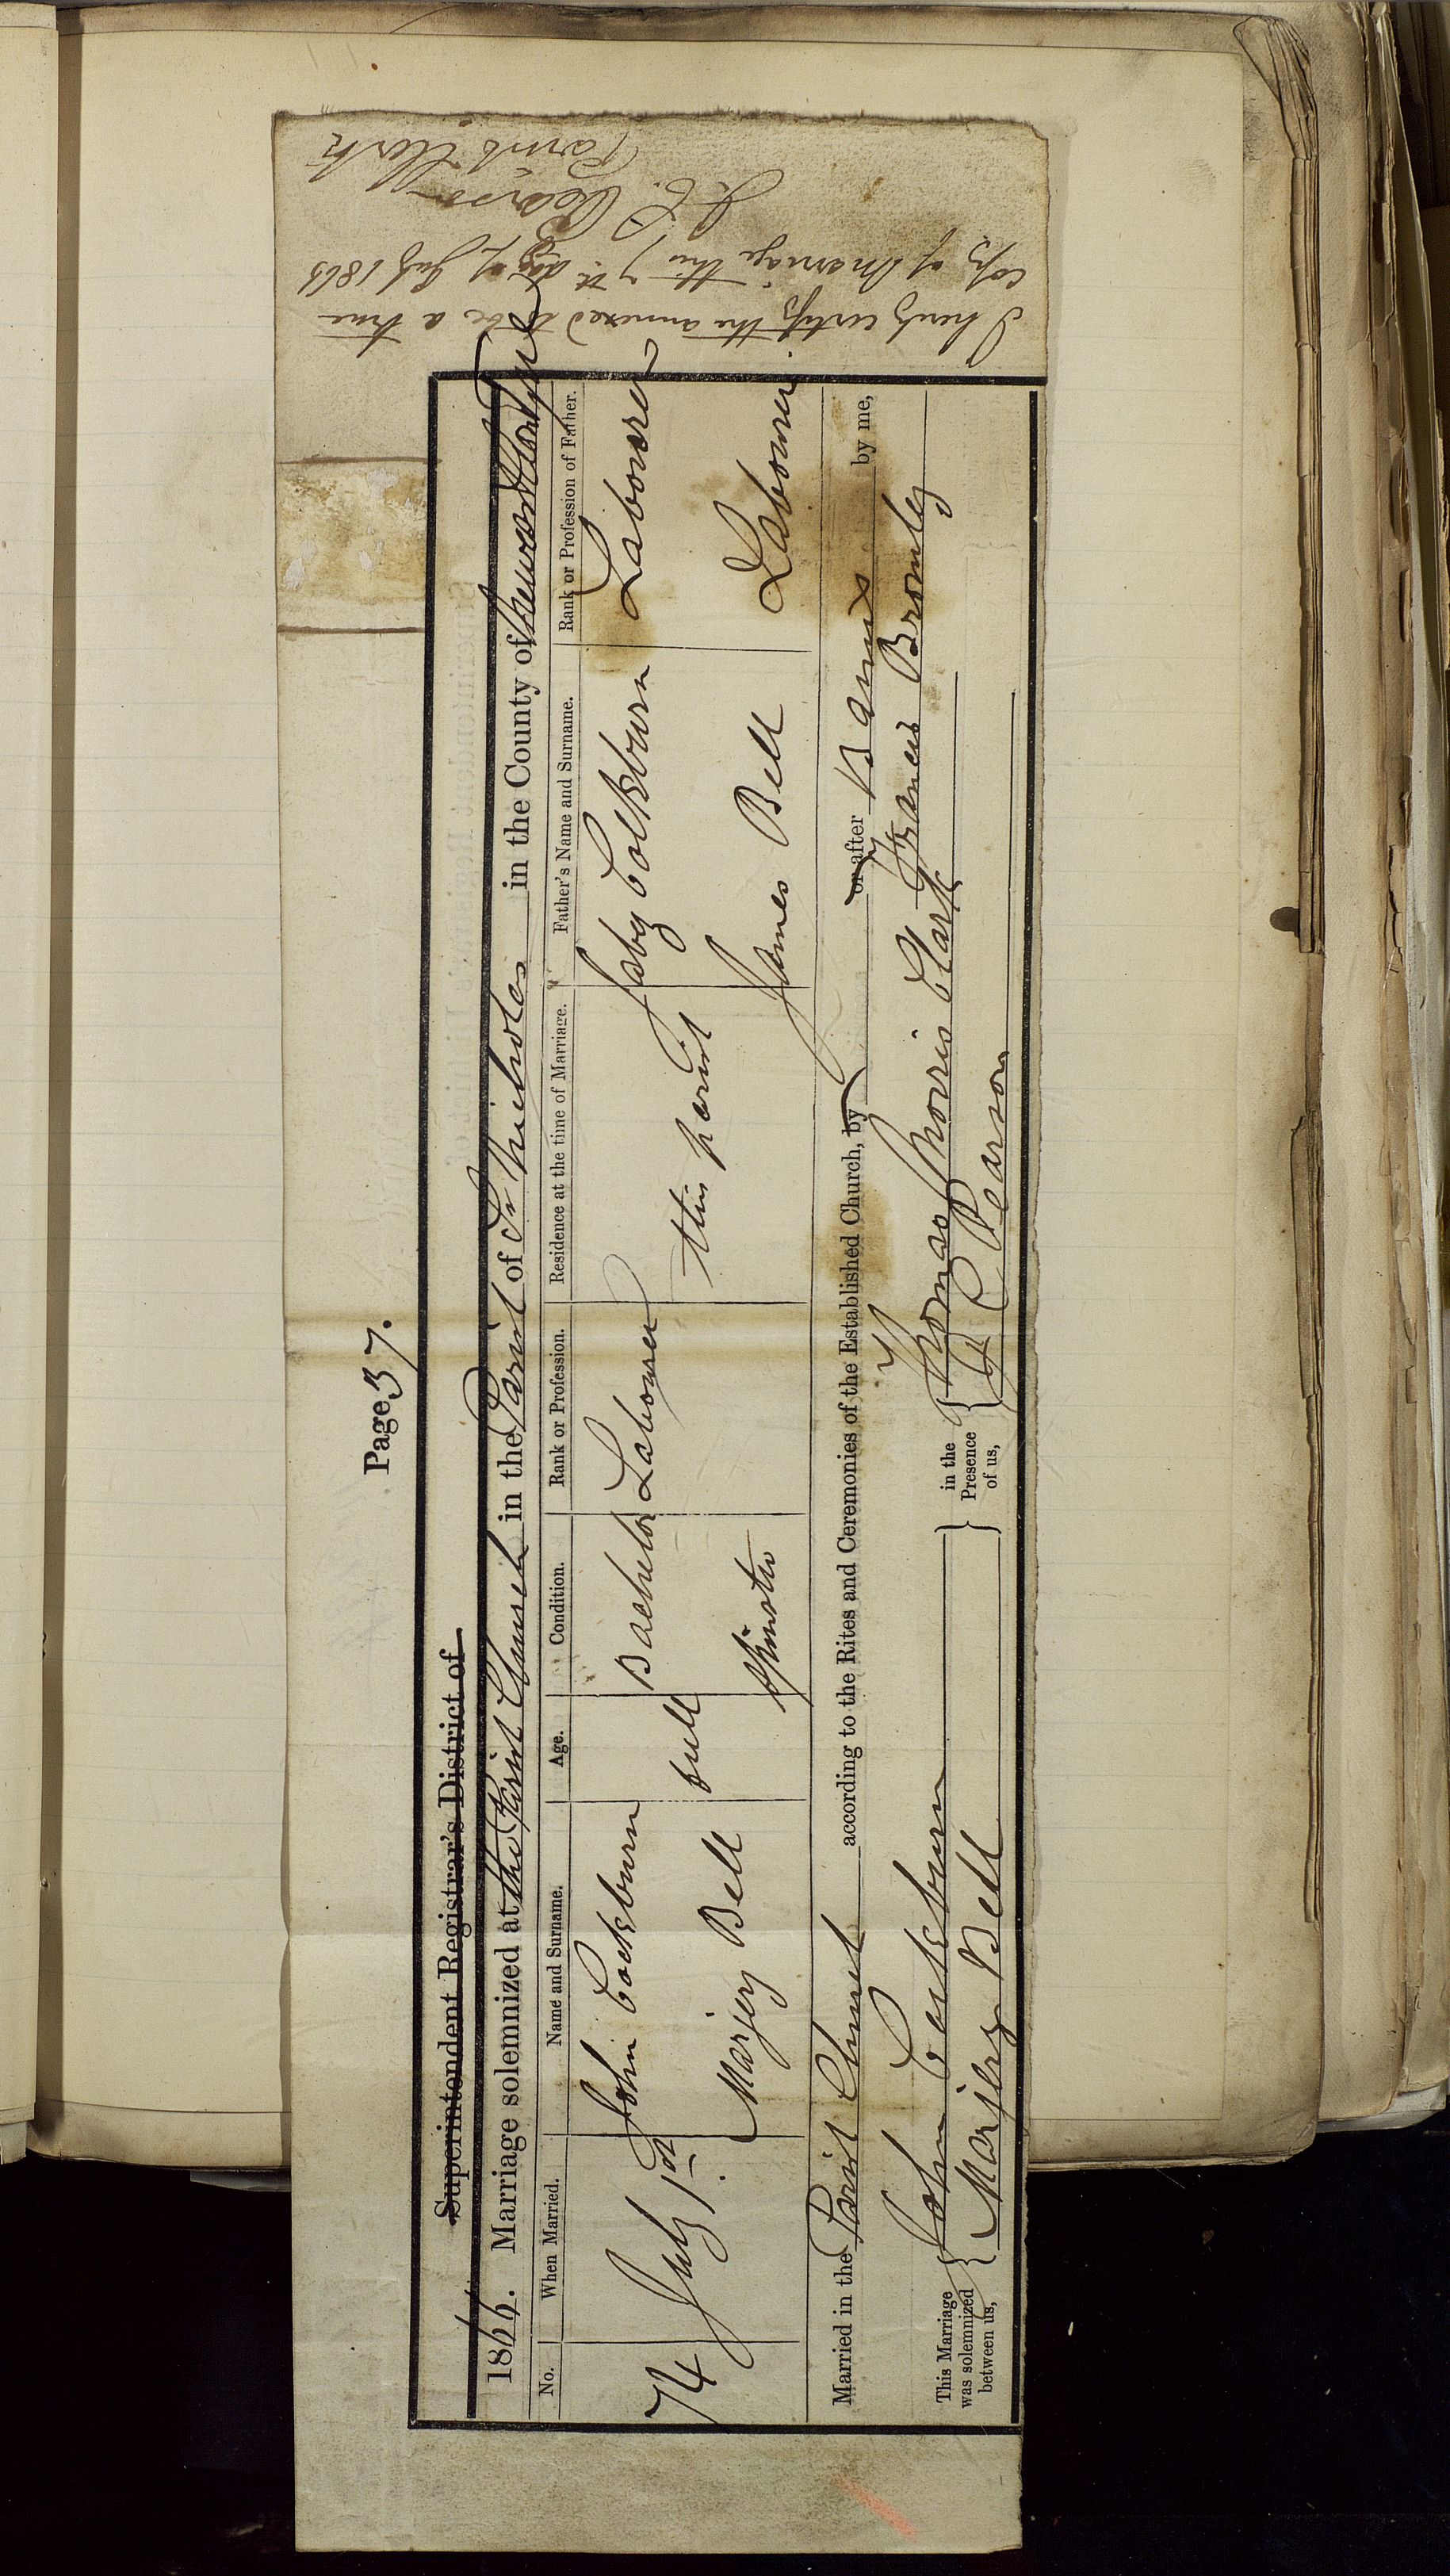 Page 37.
Superintendent Registrar's District of
1866. Marriage solemnized at the Parish Church in the Parish of St Nicholas in the County of Newcastle
No. When Married. Name and Surname. Age. Condition. Rank or Profession. Residence at the time of Marriage. Father's Name and Surname. Rank or Profession of Father.
74 July 1st John Cockburn full Bachelor Labourer this parish Cockburn Labourer
Marjery Bell Spinster James Bell Labourer
Married in the Parish Church according to the Rites and Ceremonies of the Established Church, by or after Banns by me,
This Marriage was solemnized between us, John Cockburn in the Presence of us, Thomas Morris Clark Francis Bromley
Marjery Bell Pearson
I hereby certify the annexed to be a true
copy of Marriage this 7th day of July
Pearson
Parish Clerk